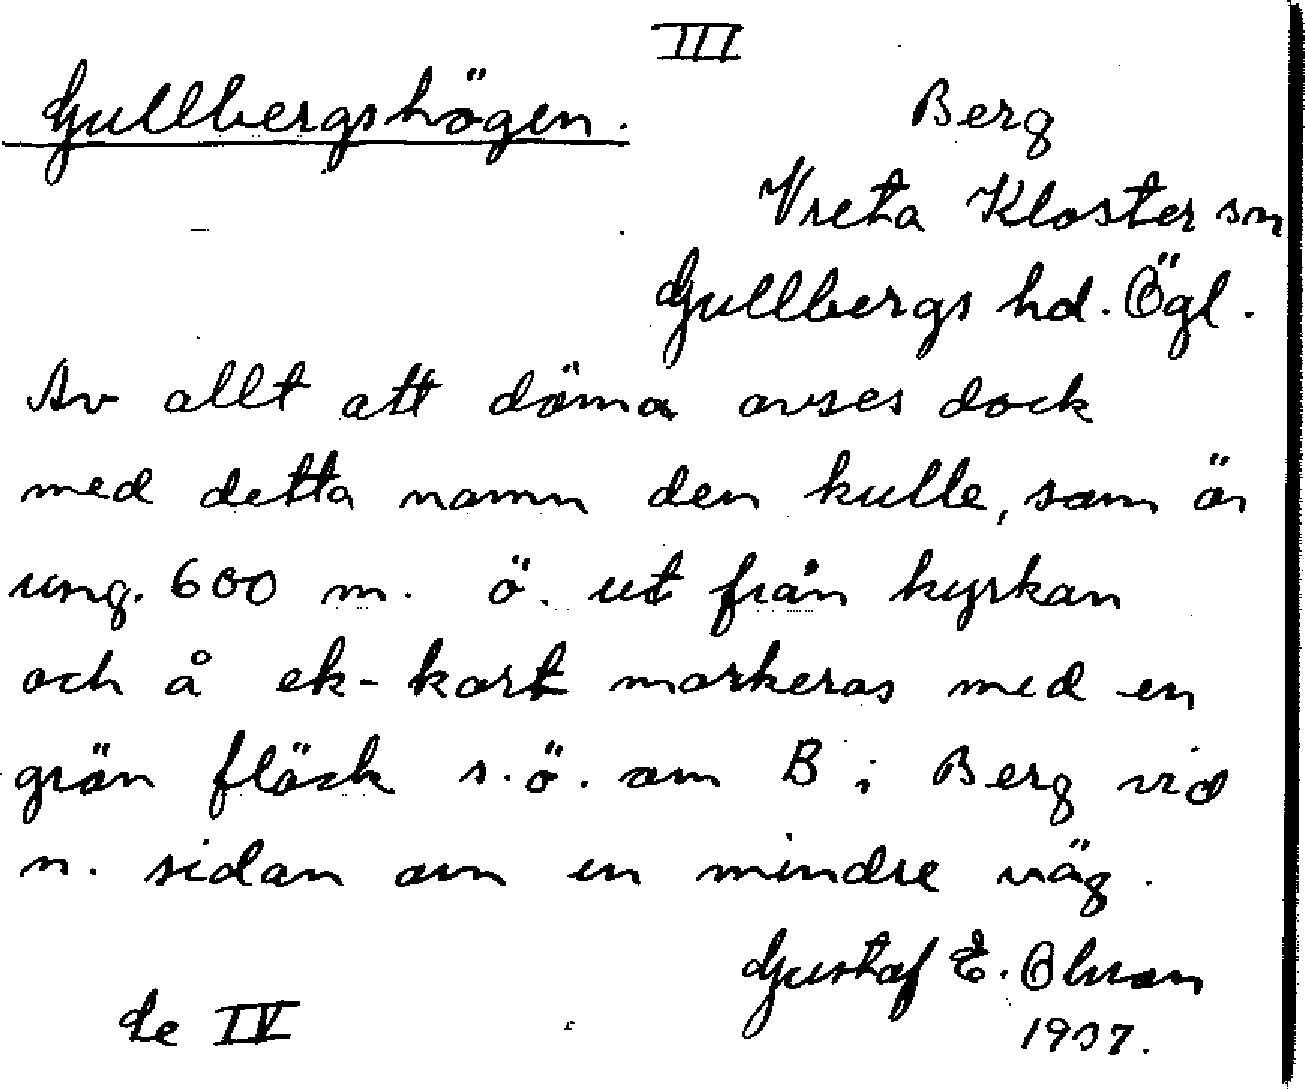 III
Gullbergshögen.
Berg
Vreta Kloster sn
Gullbergs hd. Ögl.
Av allt att döma avses dock
med detta namn den kulle, som är
ung. 600 m. ö. ut från kyrkan
och å ek-kart markeras med en
grön fläck s.ö. om B i Berg vid
n. sidan om en mindre väg.
Gustaf E. Olsson
1937.
Se IV